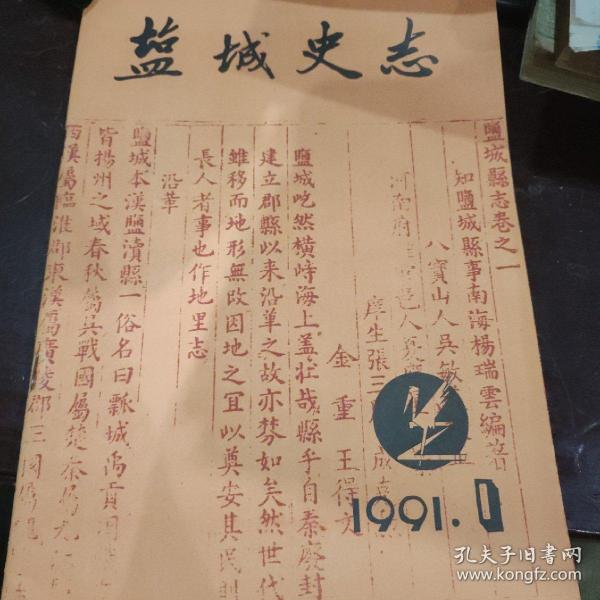 盐城史志
鹽城縣志卷之一
知鹽城縣事南海楊瑞雲編著
八寶山人吳敏
河南府
人夏
庠生張三
成
金重王得
鹽城屹然橫峙海上蓋壯哉縣乎自秦廢封
建立郡縣以來沿革之故亦棼如矣然世代
雖移而地形無改因地之宜以奠安其民則
長人者事也作地里志
沿革
鹽城本漢鹽瀆縣一俗名曰瓢城禹貢
皆揚州之域春秋屬吳戰國屬楚秦爲九
西漢屬臨淮郡東漢屬廣陵郡三國
1991.1
孔夫子旧书网
www.kongfz.com